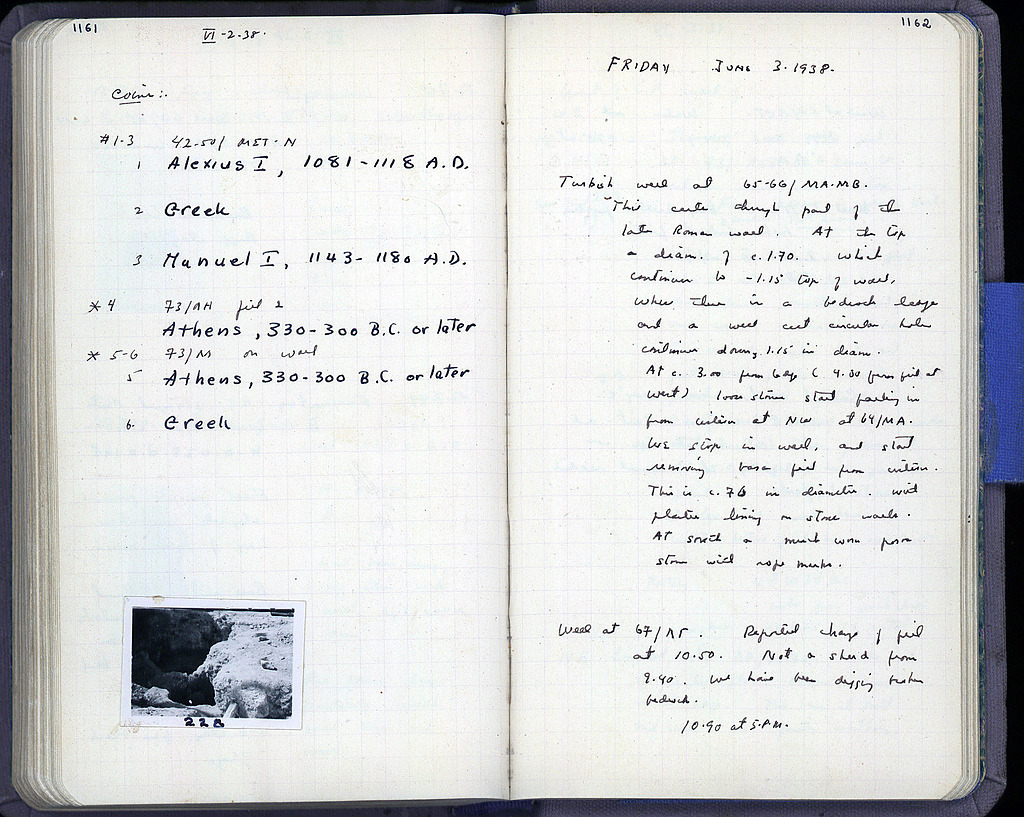 1161
VI-2-38.
Coins:.
#1-3 42-50/ MST-N
1 Alexius I, 1081-1118 A.D.
2 Greek
3 Manuel I, 1143-1180 A.D.
* 4 73/AH fill 2
Athens, 330-300 B.C. or later
* 5-6 73/M on wall
5 Athens, 330-300 B.C. or later
6. Greek
228
1162
FRIDAY JUNE 3.1938.
Turkish well at 65-66/MA-MB.
This cuts through part of the
later Roman wall. At the top
a diam. of c.1.70. which
continues to -1.15 top of wall,
where there is a bedrock ledge
and a well cut circular hole
continues down, 1.15 in diam.
At c. 3.00 from ledge (4.30 from fill at
west) loose stones start falling in
from cistern at NW at 64/MA.
We stop in well, and start
removing loose fill from cistern.
This is c.76 in diameter. with
plaster lining on stone walls.
At south a much worn poros
stone with rope marks.
Well at 67/. Reported change of fill
at 10.50. Not a sherd from
9.40. We have been digging broken
bedrock.
10.90 at 5 P.M.